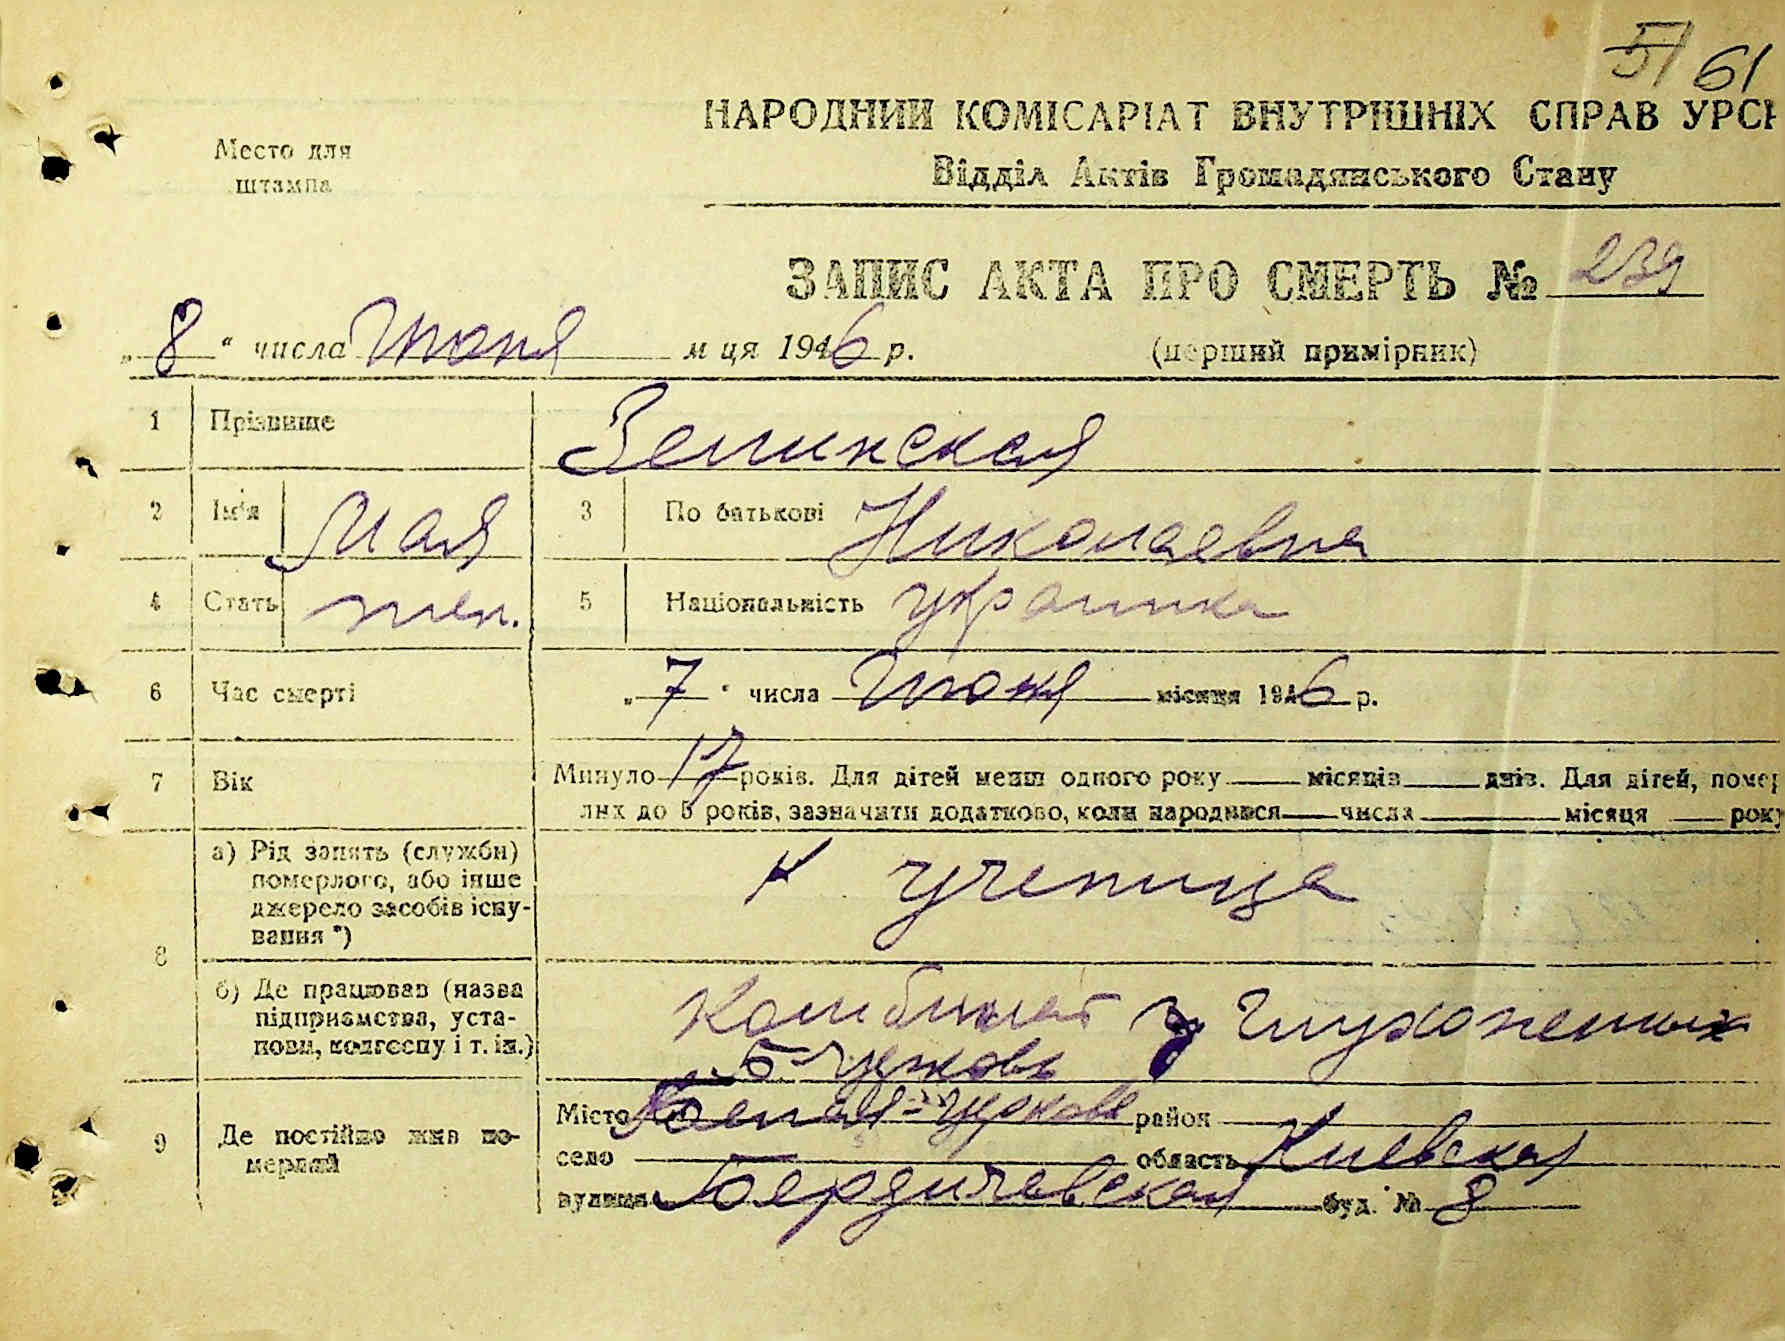 51 61
НАРОДНИЙ КОМІСАРІАТ ВНУТРІШНІХ СПРАВ УРСР
Место для
штампа
Відділ Актів Громадянського Стану
ЗАПИС АКТА ПРО СМЕРТЬ № 239
„ 8 " числа Июня м ця 1946 р. (перший примірник)
1 Прізвище Зелинская
2 Ім'я Мая 3 По батькові Николаевна
4 Стать жен. 5 Національність украинка
6 Час смерті „ 7 " числа Июня місяця 1946 р.
7 Вік Минуло 17 років. Для дітей менш одного року місяців днів. Для дітей, помер
лих до 5 років, зазначити додатково, коли народився числа місяця року
8 а) Рід занять (служби)
померлого, або інше
джерело засобів існу-
вання *)
ученица
б) Де працював (назва
підприємства, уста-
нови, колгоспу і т. ін.)
Комбинат глухонемых
Б-Церковь
9 Де постійно жив по-
мерлий
Місто Белая-Церковь район
село область Киевская
вулиця Бердичевская буд. № 8